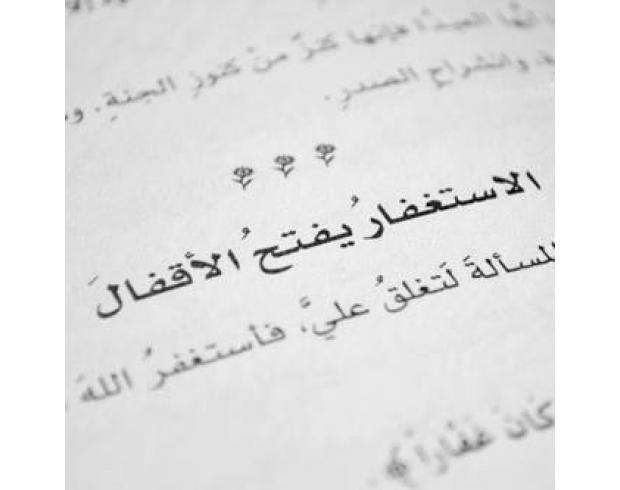 أيُّها العبدُ! فإنها كنزٌ منْ كنوزِ الجنةِ. و
وانشراحِ الصدرِ.
الاستغفارُ يفتحُ الأقفالَ
المسألةَ لَتغلقُ عليَّ، فأستغفرُ اللهَ
كَانَ غَفَّاراً﴾.